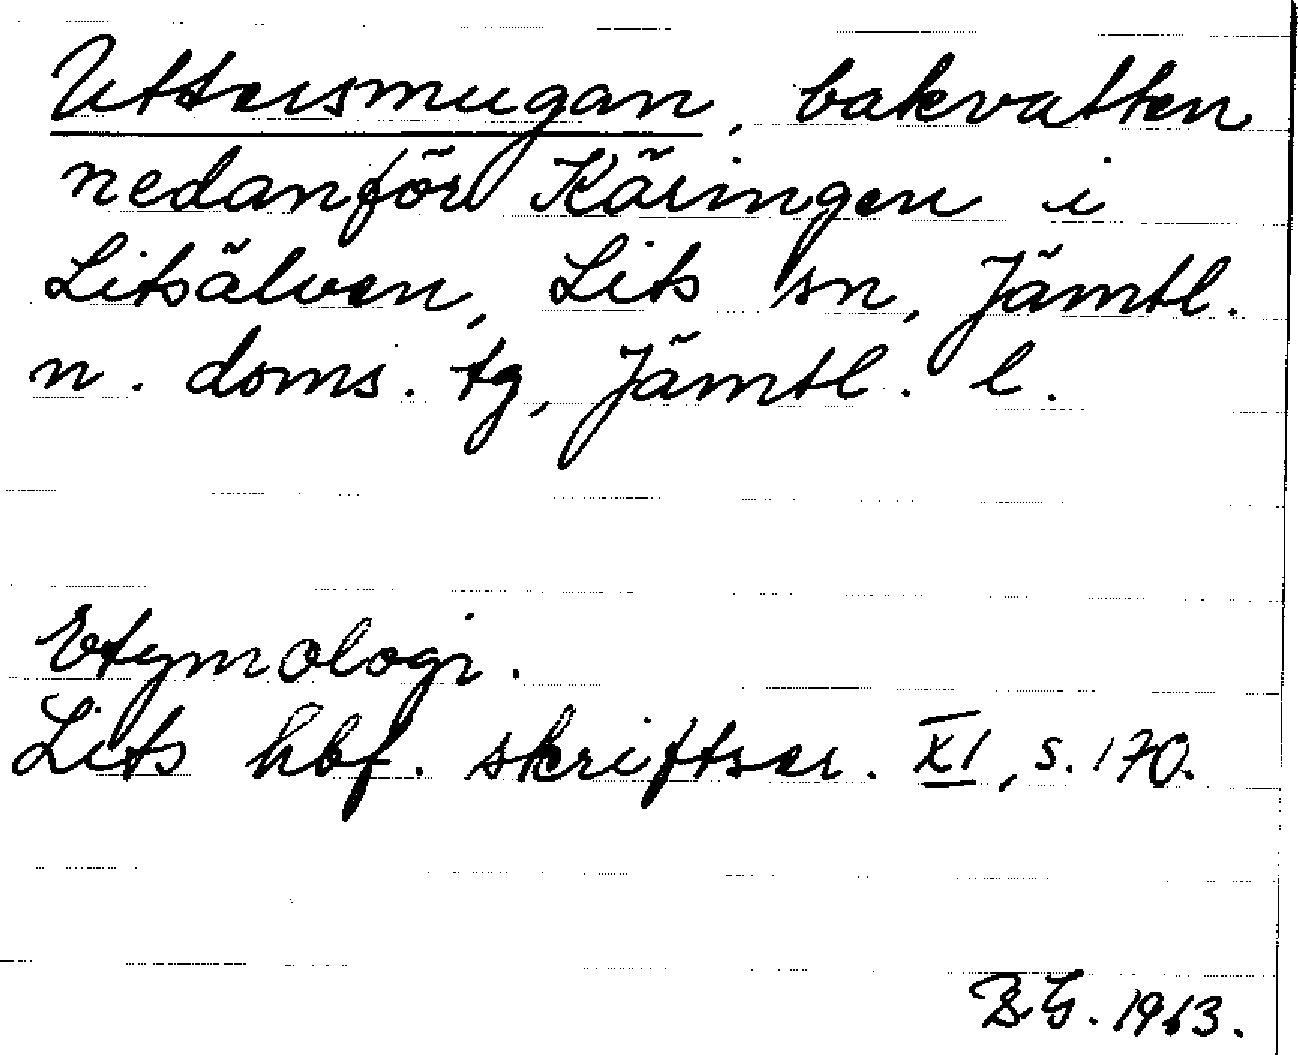 Uttersmugan, bakvatten
nedanför Käringen i
Litsälven, Lits sn, Jämtl.
n. doms. tg, Jämtl. l.
Etymologi.
Lits hbf. skriftser. XI, s. 170.
B G. 1963.